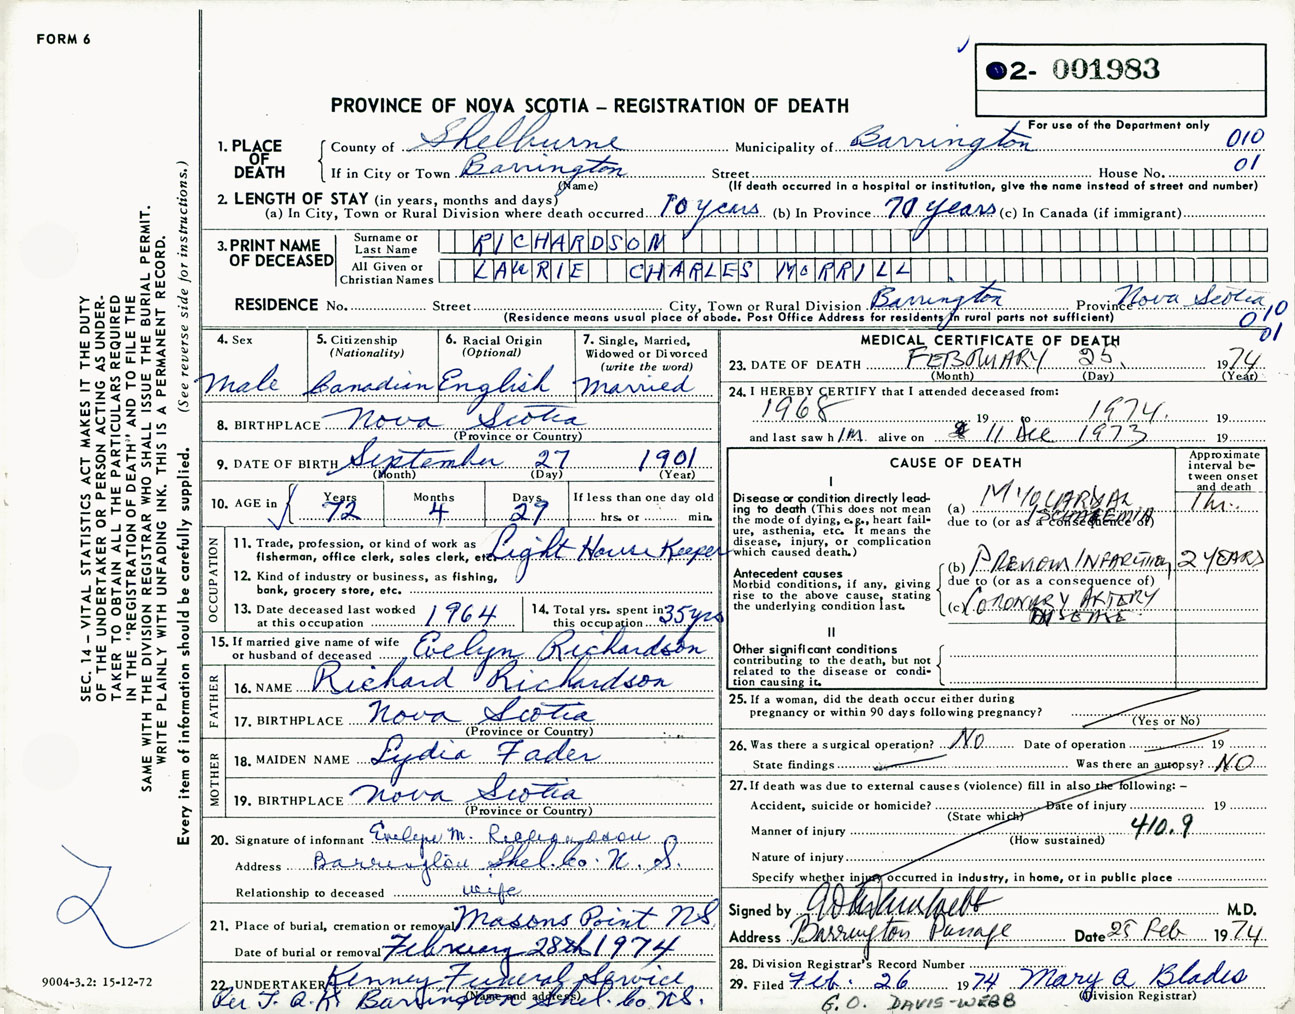 FORM 6
02- 001983
PROVINCE OF NOVA SCOTIA – REGISTRATION OF DEATH
For use of the Department only
1. PLACE OF DEATH
County of Shelburne Municipality of Barrington 010
If in City or Town Barrington Street House No. 01
(Name) (If death occurred in a hospital or institution, give the name instead of street and number)
2. LENGTH OF STAY (in years, months and days)
(a) In City, Town or Rural Division where death occurred 70 years (b) In Province 70 years (c) In Canada (if immigrant)
3. PRINT NAME OF DECEASED
Surname or Last Name RICHARDSON
All Given or Christian Names LAWRIE CHARLES MORRILL
RESIDENCE No. Street City, Town or Rural Division Barrington Province Nova Scotia
(Residence means usual place of abode. Post Office Address for residents in rural parts not sufficient) 010
01
4. Sex
Male
5. Citizenship
(Nationality)
Canadian
6. Racial Origin
(Optional)
English
7. Single, Married,
Widowed or Divorced
(write the word)
Married
8. BIRTHPLACE Nova Scotia
(Province or Country)
9. DATE OF BIRTH September 27 1901
(Month) (Day) (Year)
10. AGE in Years Months Days If less than one day old
72 4 29 hrs. or min.
OCCUPATION
11. Trade, profession, or kind of work as
fisherman, office clerk, sales clerk, etc. Light House Keeper
12. Kind of industry or business, as fishing,
bank, grocery store, etc.
13. Date deceased last worked
at this occupation 1964
14. Total yrs. spent in
this occupation 35 yrs
15. If married give name of wife
or husband of deceased Evelyn Richardson
FATHER
16. NAME Richard Richardson
17. BIRTHPLACE Nova Scotia
(Province or Country)
MOTHER
18. MAIDEN NAME Lydia Fader
19. BIRTHPLACE Nova Scotia
(Province or Country)
20. Signature of informant Evelyn M. Richardson
Address Barrington Shel. Co. N. S.
Relationship to deceased wife
21. Place of burial, cremation or removal Masons Point NS
Date of burial or removal February 28th 1974
22. UNDERTAKER Kenney Funeral Service
(Name and address)
Per T. A. K. Barrington Shel. Co. N.S.
MEDICAL CERTIFICATE OF DEATH
23. DATE OF DEATH FEBRUARY 25. 1974
(Month) (Day) (Year)
24. I HEREBY CERTIFY that I attended deceased from:
1968 19 to 1974. 19
and last saw him alive on 11 Dec 1973 19
CAUSE OF DEATH
Approximate
interval be-
tween onset
and death
I
Disease or condition directly lead-
ing to death (This does not mean
the mode of dying, e.g., heart fail-
ure, asthenia, etc. It means the
disease, injury, or complication
which caused death.)
(a) MYOCARDIAL ISCHAEMIA 1 hr.
due to (or as a consequence of)
Antecedent causes
Morbid conditions, if any, giving
rise to the above cause, stating
the underlying condition last.
(b) PREVIOUS INFARCTION 2 YEARS
due to (or as a consequence of)
(c) CORONARY ARTERY
DISEASE
II
Other significant conditions
contributing to the death, but not
related to the disease or condi-
tion causing it.
25. If a woman, did the death occur either during
pregnancy or within 90 days following pregnancy?
(Yes or No)
26. Was there a surgical operation? NO Date of operation 19
State findings Was there an autopsy? NO
27. If death was due to external causes (violence) fill in also the following: –
Accident, suicide or homicide? Date of injury 19
(State which)
Manner of injury 410.9
(How sustained)
Nature of injury
Specify whether injury occurred in industry, in home, or in public place
Signed by M.D.
Address Barrington Passage Date 25 Feb 1974
28. Division Registrar's Record Number
29. Filed Feb. 26 1974 Mary A Blades
(Division Registrar)
G.O. DAVIS-WEBB
SEC. 14 – VITAL STATISTICS ACT MAKES IT THE DUTY
OF THE UNDERTAKER OR PERSON ACTING AS UNDER-
TAKER TO OBTAIN ALL THE PARTICULARS REQUIRED
IN THE "REGISTRATION OF DEATH" AND TO FILE THE
SAME WITH THE DIVISION REGISTRAR WHO SHALL ISSUE THE BURIAL PERMIT.
WRITE PLAINLY WITH UNFADING INK. THIS IS A PERMANENT RECORD.
Every item of information should be carefully supplied. (See reverse side for instructions.)
2
9004-3.2: 15-12-72